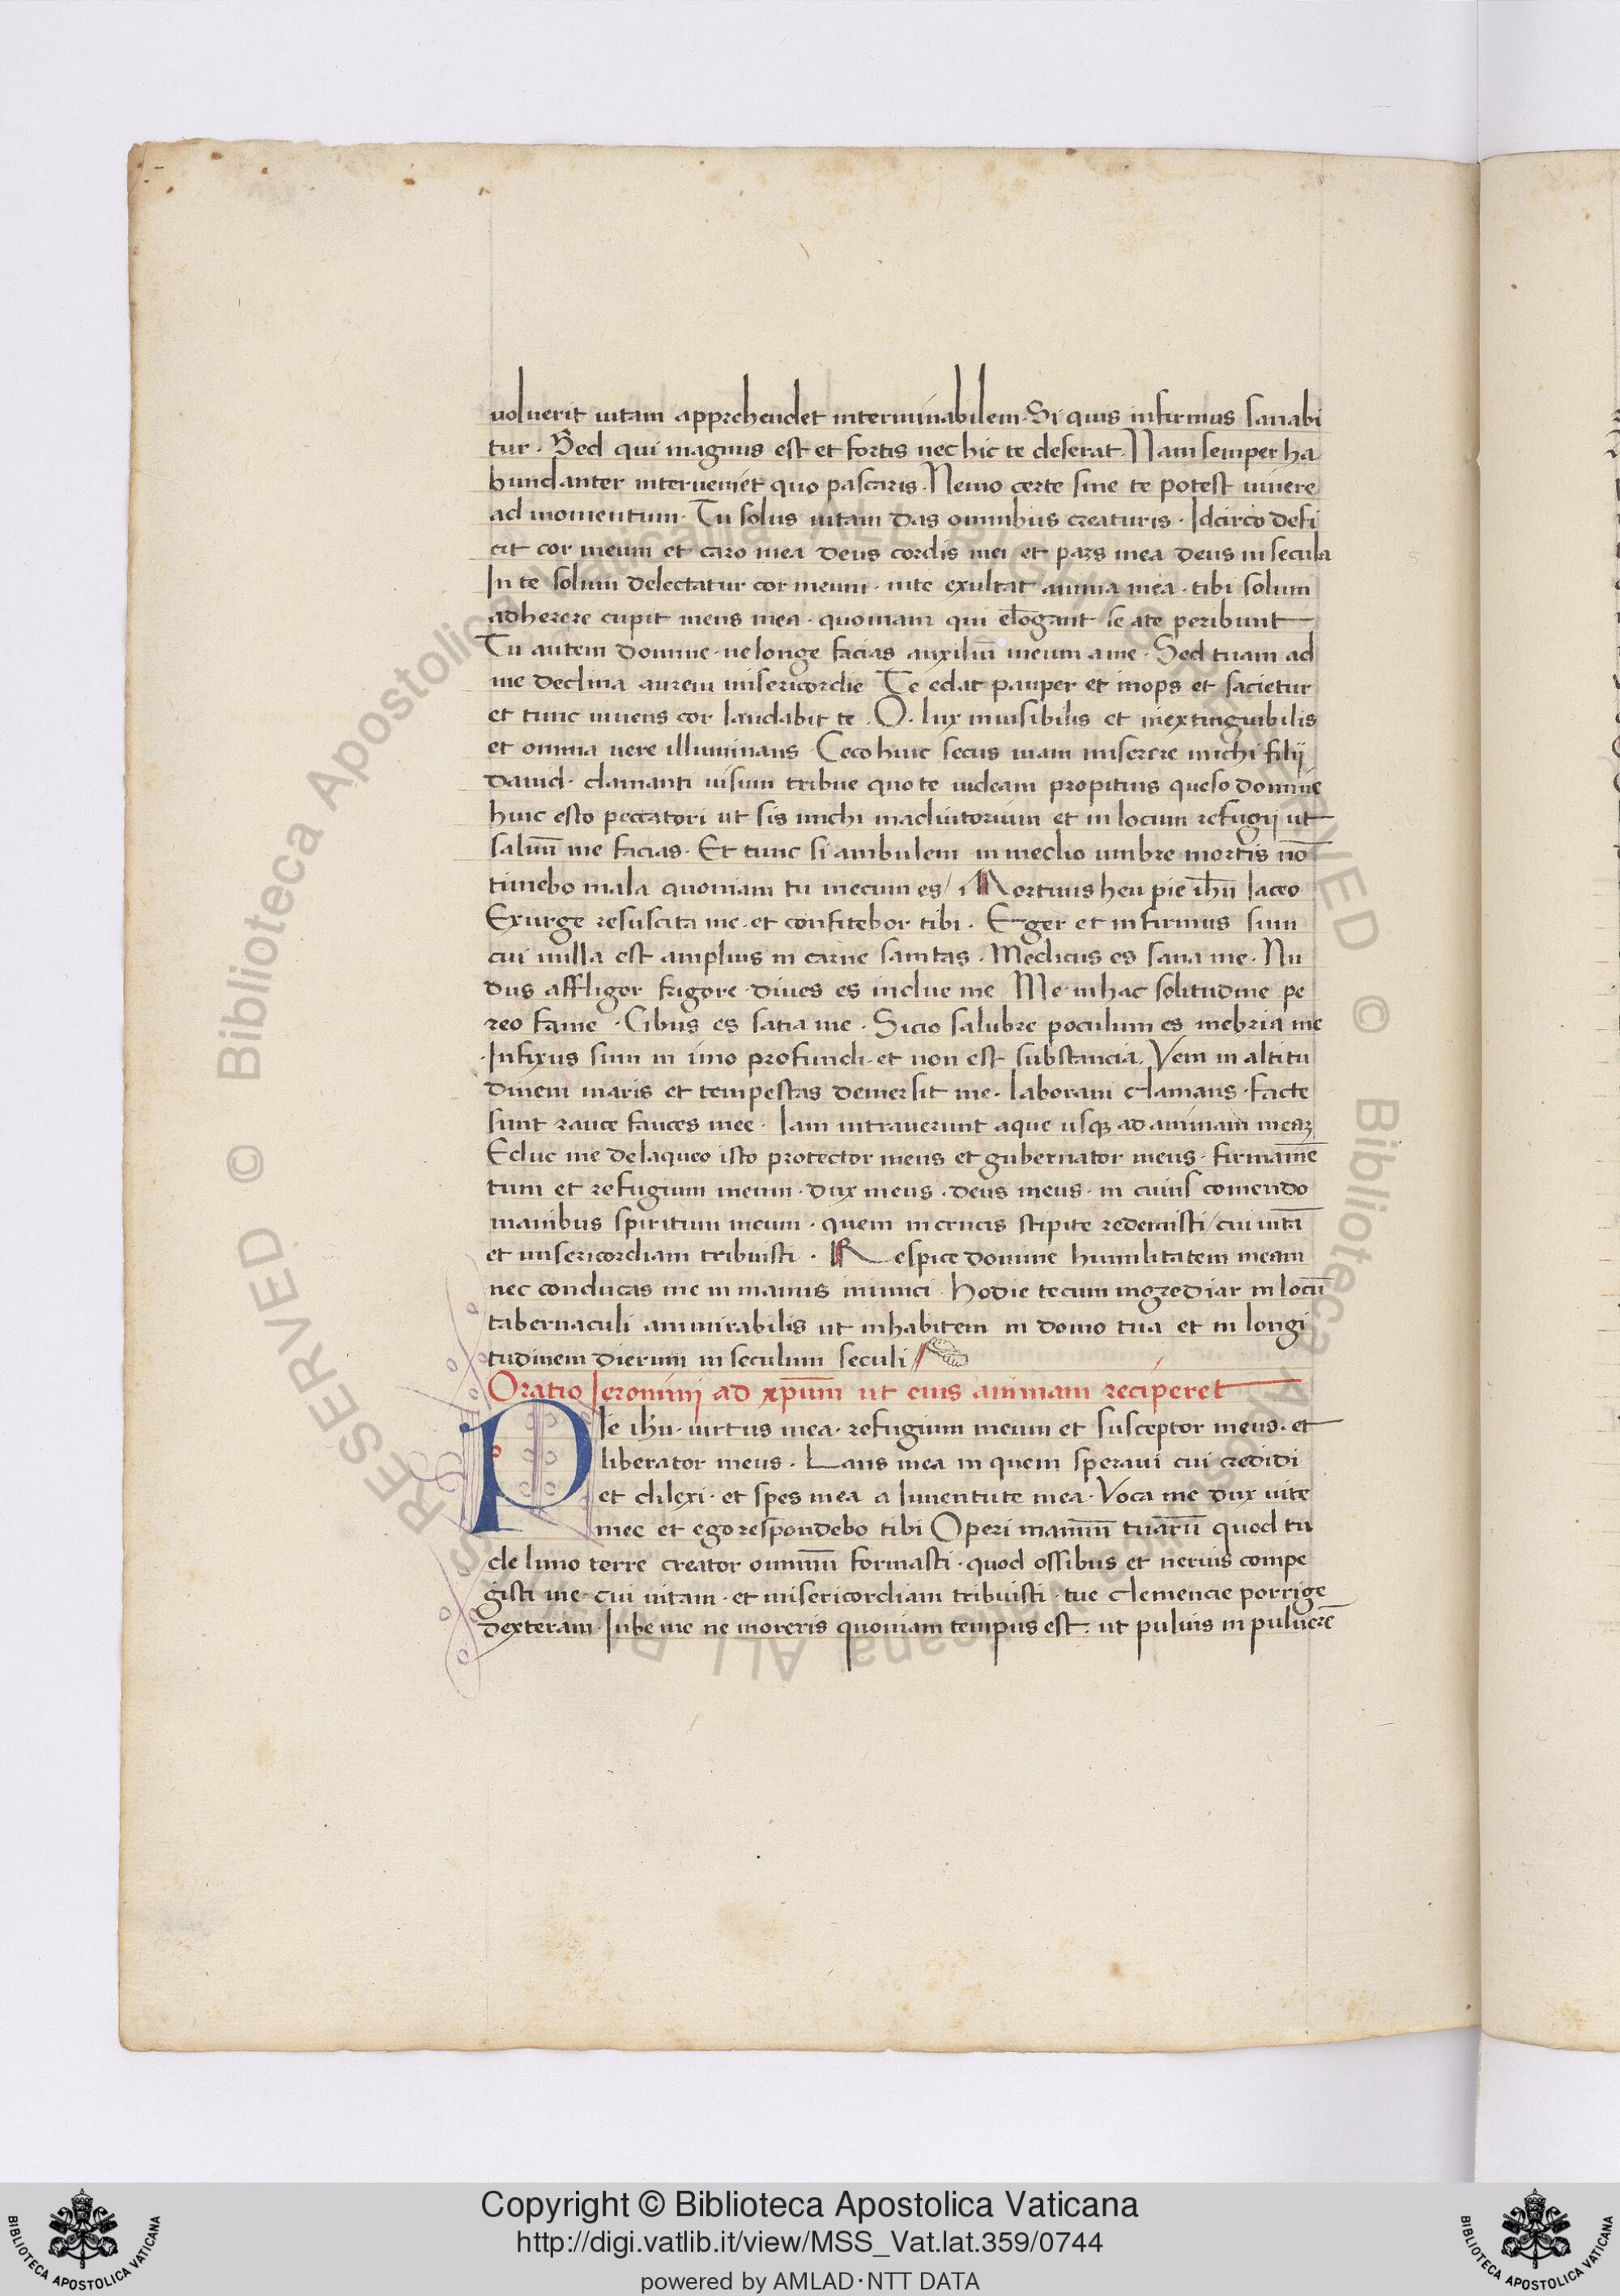 uoluerit uitam apprehendet interminabilem · Si quis infirmus sanabi
tur · Sed qui magnus est et fortis nec hic te deserat · Nam semper ha
bundanter interueniet quo pascaris · Nemo certe sine te potest uiuere
ad momentum · Tu solus uitam das omnibus creaturis · Idcirco defi
cit cor meum et caro mea deus cordis mei et pars mea deus in secula
In te solum delectatur cor meum · inte exultat anima mea · tibi solum
adherere cupit mens mea · quoniam qui elōgant se ate peribunt
Tu autem domine · ne longe facias auxiliū meum ame · Sed tuam ad
me declina aurem misericordie Te edat pauper et inops et sacietur
et tunc uiuens cor laudabit te · O · lux inuisibilis et inextinguibilis
et omnia uere illuminans · Ceco huic secus uiam miserere michi filij
dauid · clamanti uisum tribue quo te uideam propitius queso domine
huic esto peccatori ut sis michi inadiutorium et in locum refugij ut
saluū me facias · Et tunc si ambulem in medio umbre mortis nō
timebo mala quoniam tu mecum es / Mortuus heu pie ih̄u iaceo
Exurge resuscita me · et confitebor tibi · Eger et infirmus sum
cui nulla est amplius in carne sanitas · Medicus es sana me · Nu
dus affligor frigore diues es indue me Me inhac solitudine pe
reo fame · Cibus es satia me · Sicio salubre poculum es inebria me
Infixus sum in imo profundi · et non est substancia · Veni in altitu
dinem maris et tempestas demersit me · laboraui clamans · facte
sunt rauce fauces mee · Iam intrauerunt aque usqꝫ ad animam meaꝫ
Educ me delaqueo isto protector meus et gubernator meus · firmamē
tum et refugium meum · dux meus · deus meus · in cuius comendo
manibus spiritum meum · quem in crucis stipite redemisti / cui uitā
et misericordiam tribuisti · Respice domine humilitatem meam
nec conducas me in manus inimici · hodie tecum ingrediar in locū
tabernaculi ammirabilis ut inhabitem in domo tua et in longi
tudinem dierum in seculum seculi
Oratio Ieronimi ad xp̄um ut eius animam reciperet
PIe ih̄u · uirtus mea · refugium meum et susceptor meus · et
liberator meus · Laus mea in quem speraui cui credidi
et dilexi · et spes mea a Iuuentute mea · Voca me dux uite
mee et ego respondebo tibi Operi manuū tuarū quod tu
de limo terre creator omniū formasti · quod ossibus et neruis compe
gisti me · cui uitam · et misericordiam tribuisti · tue clemencie porrige
dexteram · Iube me ne moreris quoniam tempus est · ut puluis in puluerē
© Biblioteca Apostolica Vaticana ALL RIGHTS RESERVED
Copyright © Biblioteca Apostolica Vaticana
http://digi.vatlib.it/view/MSS_Vat.lat.359/0744
powered by AMLAD·NTT DATA
BIBLIOTECA APOSTOLICA VATICANA
BIBLIOTECA APOSTOLICA VATICANA